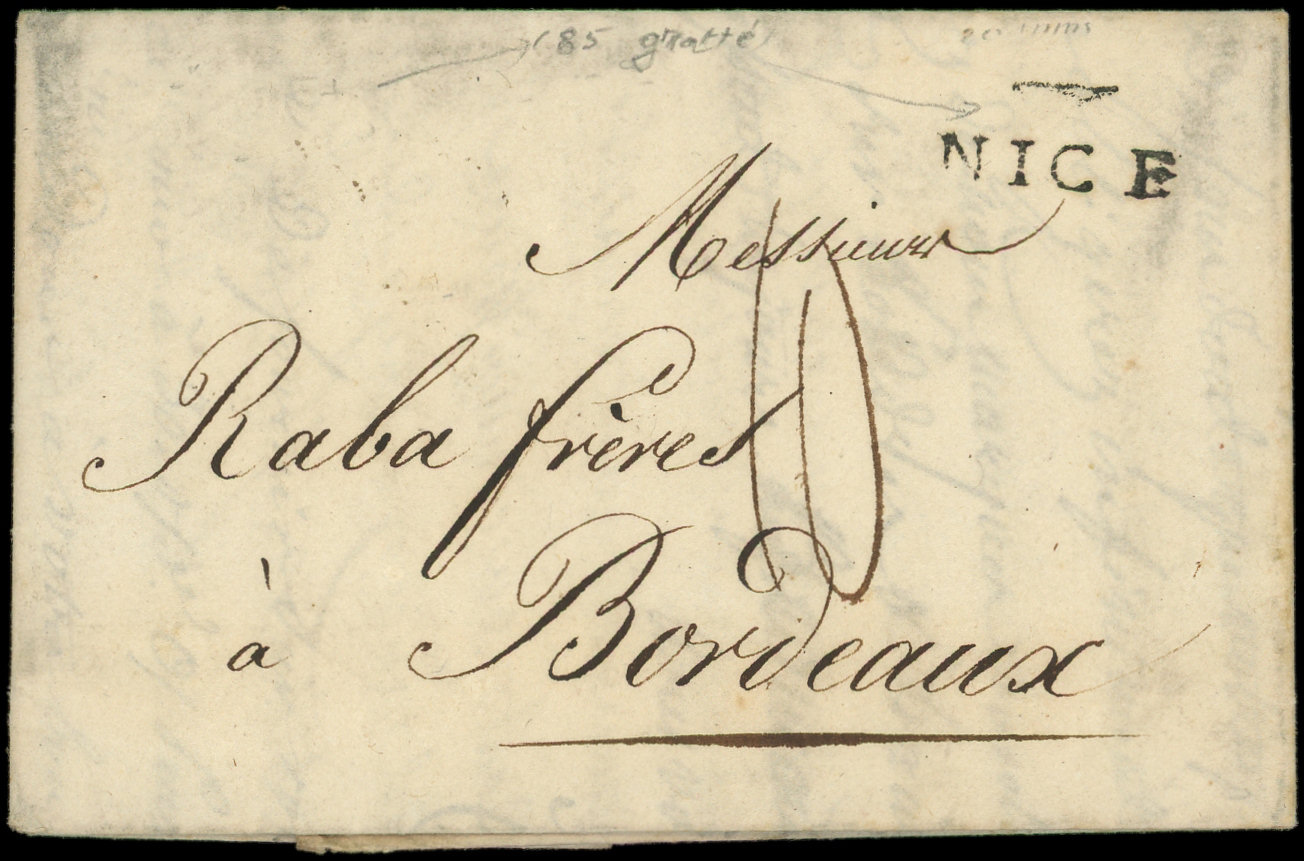 (85 gratté
NICE
Messieurs
10
Raba frères
à Bordeaux